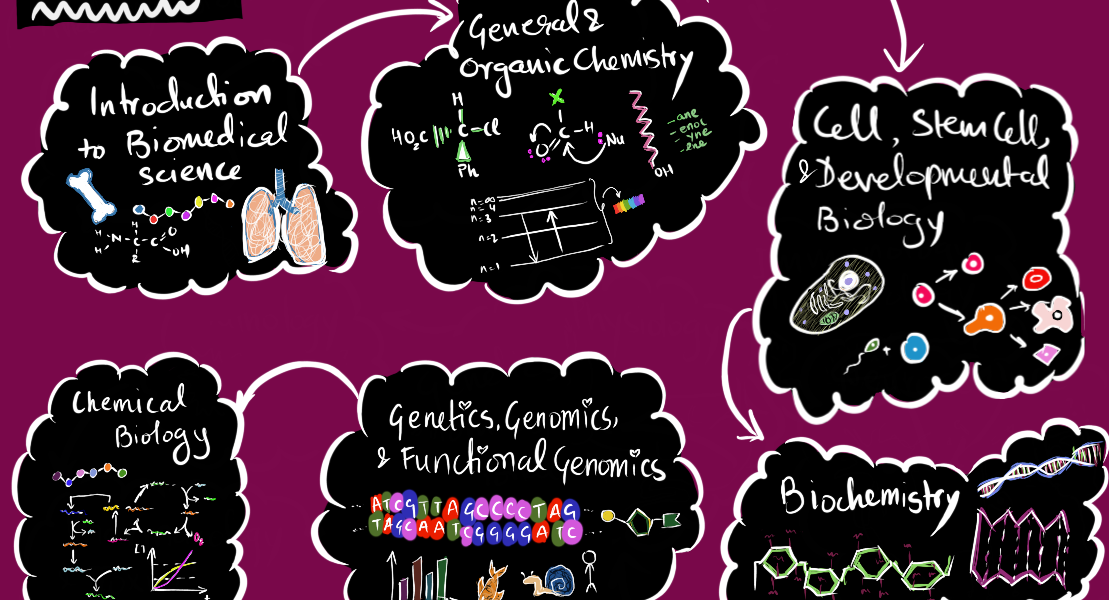 Introduction
to Biomedical
science
H
H
N
C
C
O
OH
General &
Organic Chemistry
H
HO₂C
C
Cl
Ph
X
C
H
O
:Nu
-ane
-enol
-yne
-ene
OH
n=∞
n=4
n=3
n=2
n=1
Cell, Stem Cell,
& Developmental
Biology
+
Chemical
Biology
Genetics, Genomics,
& Functional Genomics
ATCGTTAGCCCCTAG
TAGCAATCGGGGATC
Biochemistry